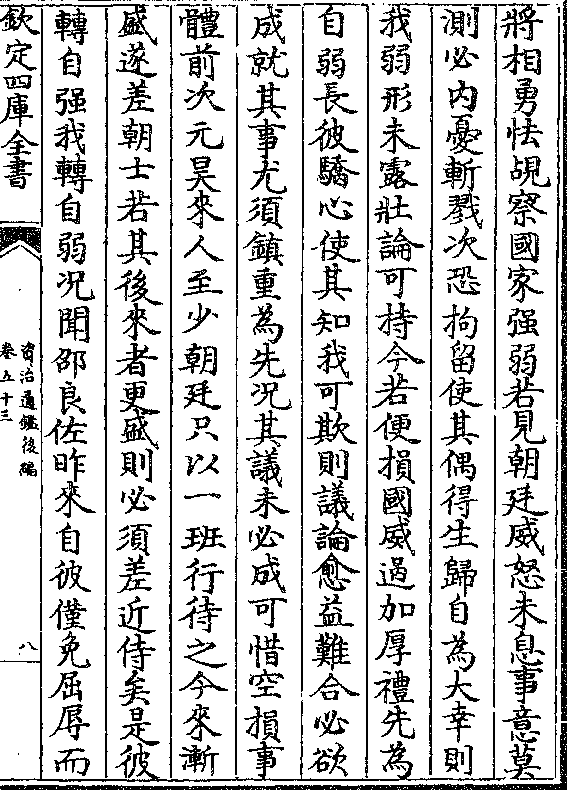 將相勇怯覘察國家强弱若見朝廷威怒未息事意莫
測必内憂斬戮次恐拘留使其偶得生歸自為大幸則
我弱形未露壯論可持今若便損國威過加厚禮先為
自弱長彼驕心使其知我可欺則議論愈益難合必欲
成就其事尤須鎮重為先况其議未必成可惜空損事
體前次元昊來人至少朝廷只以一班行待之今來漸
盛遂差朝士若其後來者更盛則必須差近侍矣是彼
轉自强我轉自弱况聞邵良佐昨來自彼僅免屈辱而
欽定四庫全書
資治通鑑後編
卷五十三
八